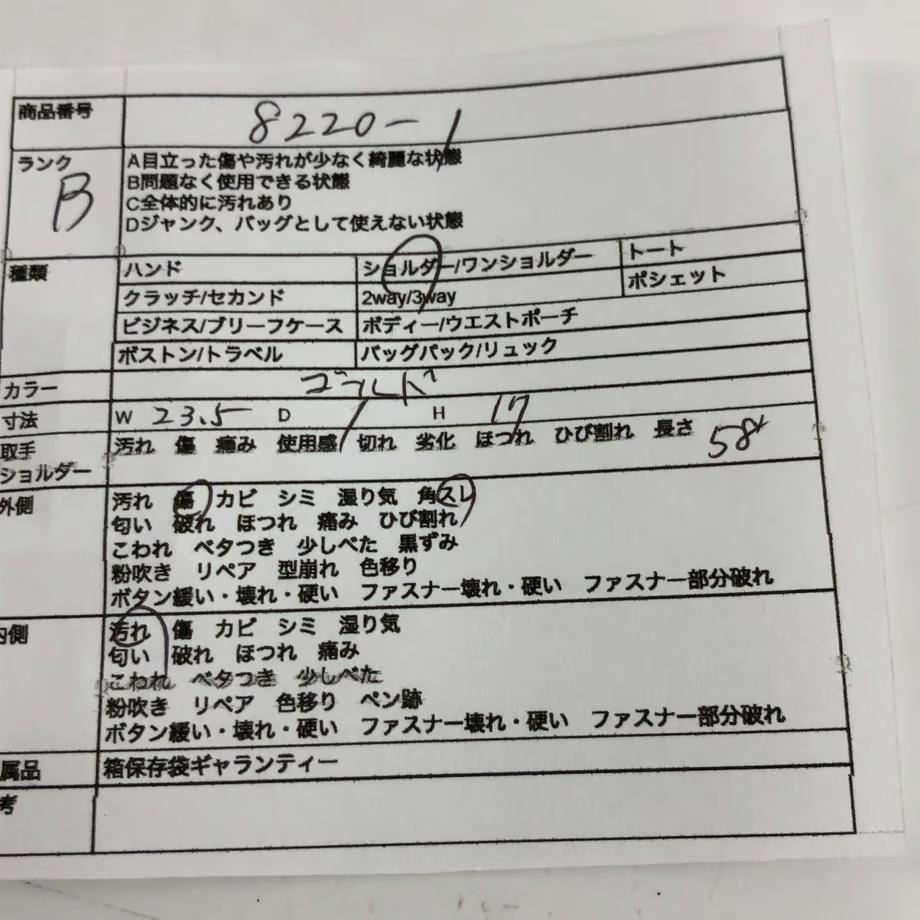 商品番号 8220-1
ランク B
A目立った傷や汚れが少なく綺麗な状態
B問題なく使用できる状態
C全体的に汚れあり
Dジャンク、バッグとして使えない状態
種類 ハンド ショルダー/ワンショルダー トート
クラッチ/セカンド 2way/3way ポシェット
ビジネス/ブリーフケース ボディー/ウエストポーチ
ボストン/トラベル バッグパック/リュック
カラー ゴールド
寸法 W 23.5 D 1 H 17
取手 汚れ 傷 痛み 使用感 切れ 劣化 ほつれ ひび割れ 長さ 58
ショルダー
外側 汚れ 傷 カビ シミ 湿り気 角スレ
匂い 破れ ほつれ 痛み ひび割れ
こわれ ベタつき 少しべた 黒ずみ
粉吹き リペア 型崩れ 色移り
ボタン緩い・壊れ・硬い ファスナー壊れ・硬い ファスナー部分破れ
内側 汚れ 傷 カビ シミ 湿り気
匂い 破れ ほつれ 痛み
こわれ ベタつき 少しべた
粉吹き リペア 色移り ペン跡
ボタン緩い・壊れ・硬い ファスナー壊れ・硬い ファスナー部分破れ
属品 箱保存袋ギャランティー
考